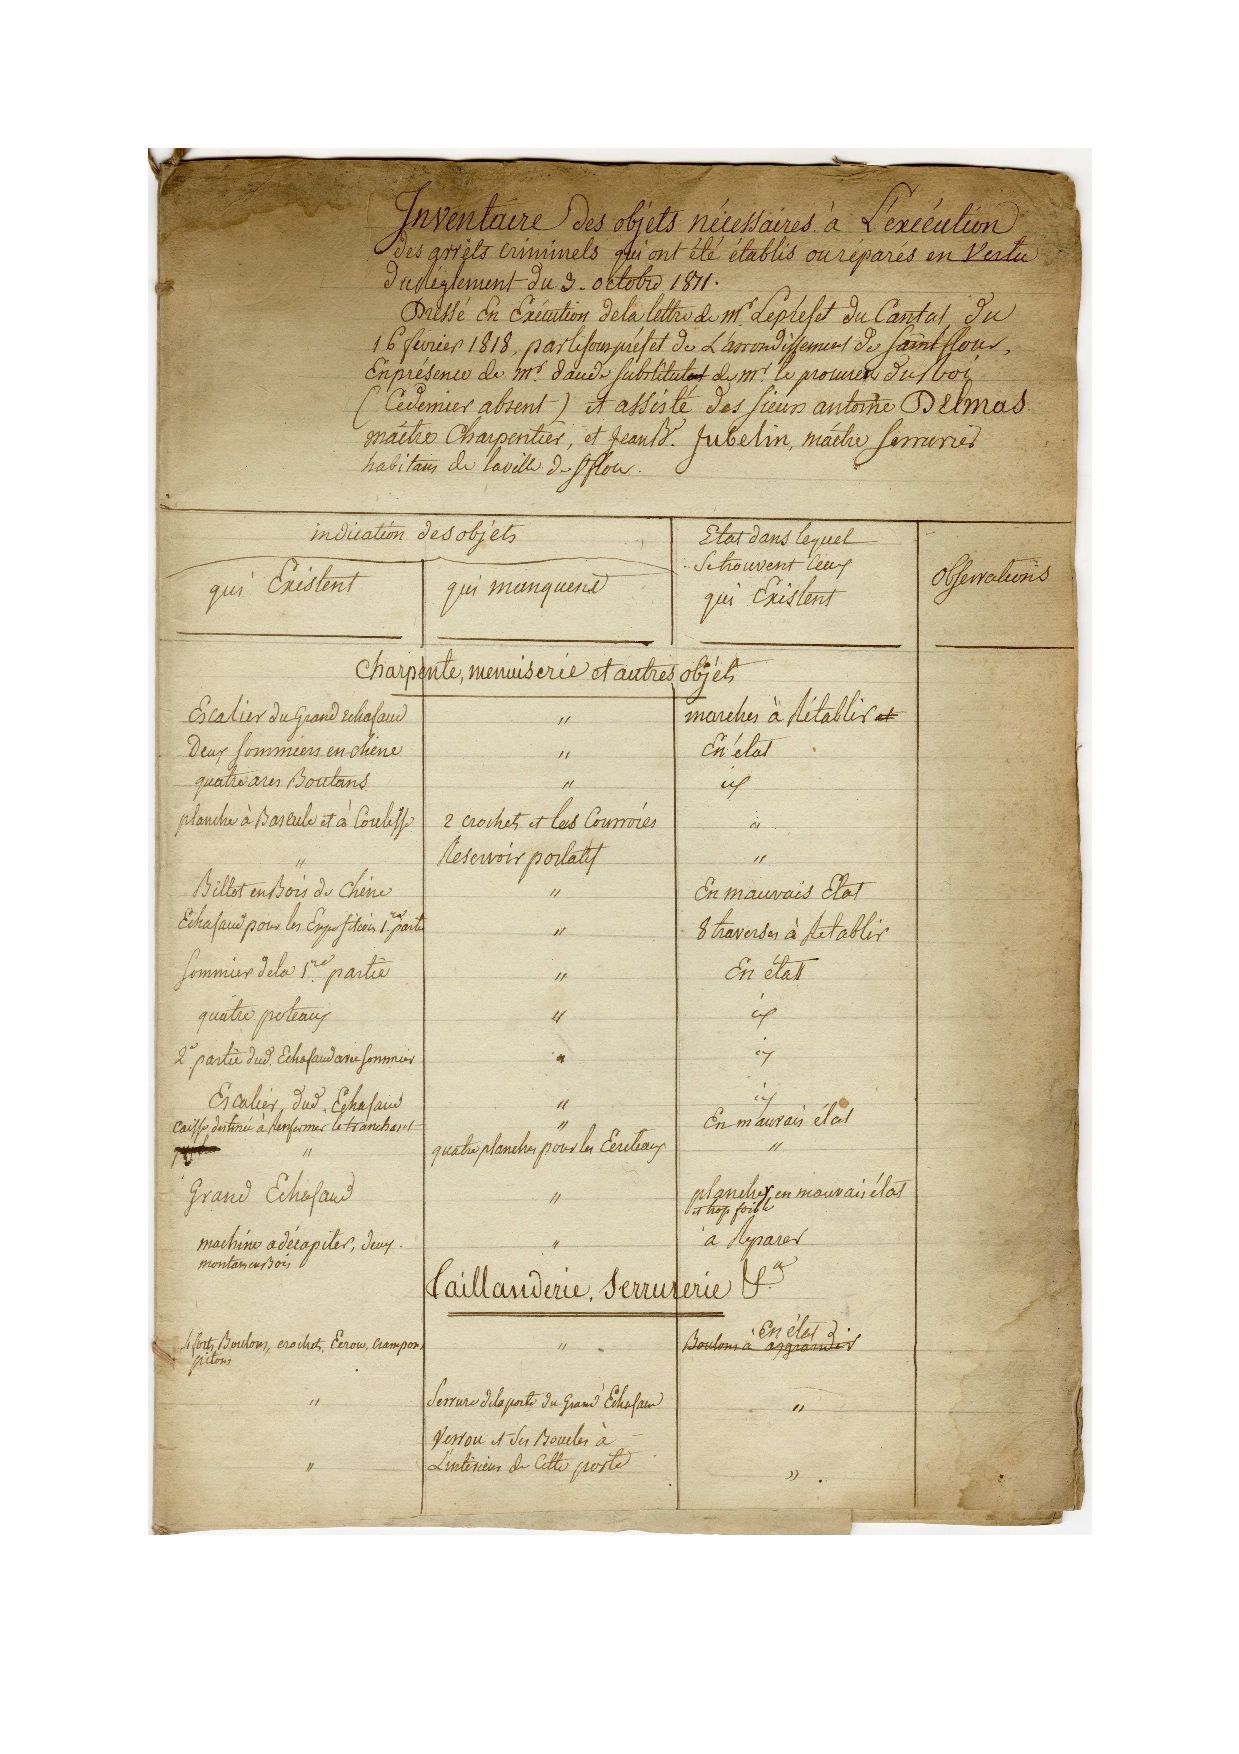 Inventaire des objets nécessaires à L'exécution
des arrêts criminels qui ont été établis ou réparés en Vertu
du règlement du 3. octobre 1811.
Dressé En Exécution de la lettre de Mr. Le préfet du Cantal du
16 février 1818, par le sous préfet de L'arrondissement de Saint flour,
En présence de mr. daude Substitut de mr. le procureur du Roi
(Ce dernier absent) et assisté des sieurs antoine Delmas
maître Charpentier, et Jean Bte. Jubelin, maître Serrurier
habitans de la ville de St flour.
indication des objets
qui Existent | qui manquent | Etat dans lequel se trouvent Ceux qui Existent | Observations
Charpente, menuiserie et autres objets
Escalier du Grand echafaud | " | marches à Rétablir
Deux Sommiers en chêne | " | En état
quatre arcs Boutans | " | id
planche à Bascule et à Coulisse | 2 crochets et les Courroies | "
" | Reservoir portatif | "
Billot en Bois de Chêne | " | En mauvais Etat
Echafaud pour les Expositions 1re. partie | " | 8 traverses à Rétablir
Sommier de la 1re. partie | " | En état
quatre poteaux | " | id
2e partie dud. Echafaud avec Sommier | " | id
Escalier dud. Echafaud | " | id
Caisse destinée à Renfermer le tranchant | " | En mauvais état
" | quatre planches pour les Ecriteaux | "
Grand Echafaud | " | plancher en mauvais état
et trop foible
machine a décapiter, deux | " | à Réparer
montans en Bois
Taillanderie, Serrurerie &a
4 forts Boulons, crochets, Ecrous, Crampons | " | En état
pitons | Boulons à aggrandir
" | Serrure de la porte du Grand Echafaud | "
Verrou et Ses Boucles à
" | L'intérieur de Cette porte | "